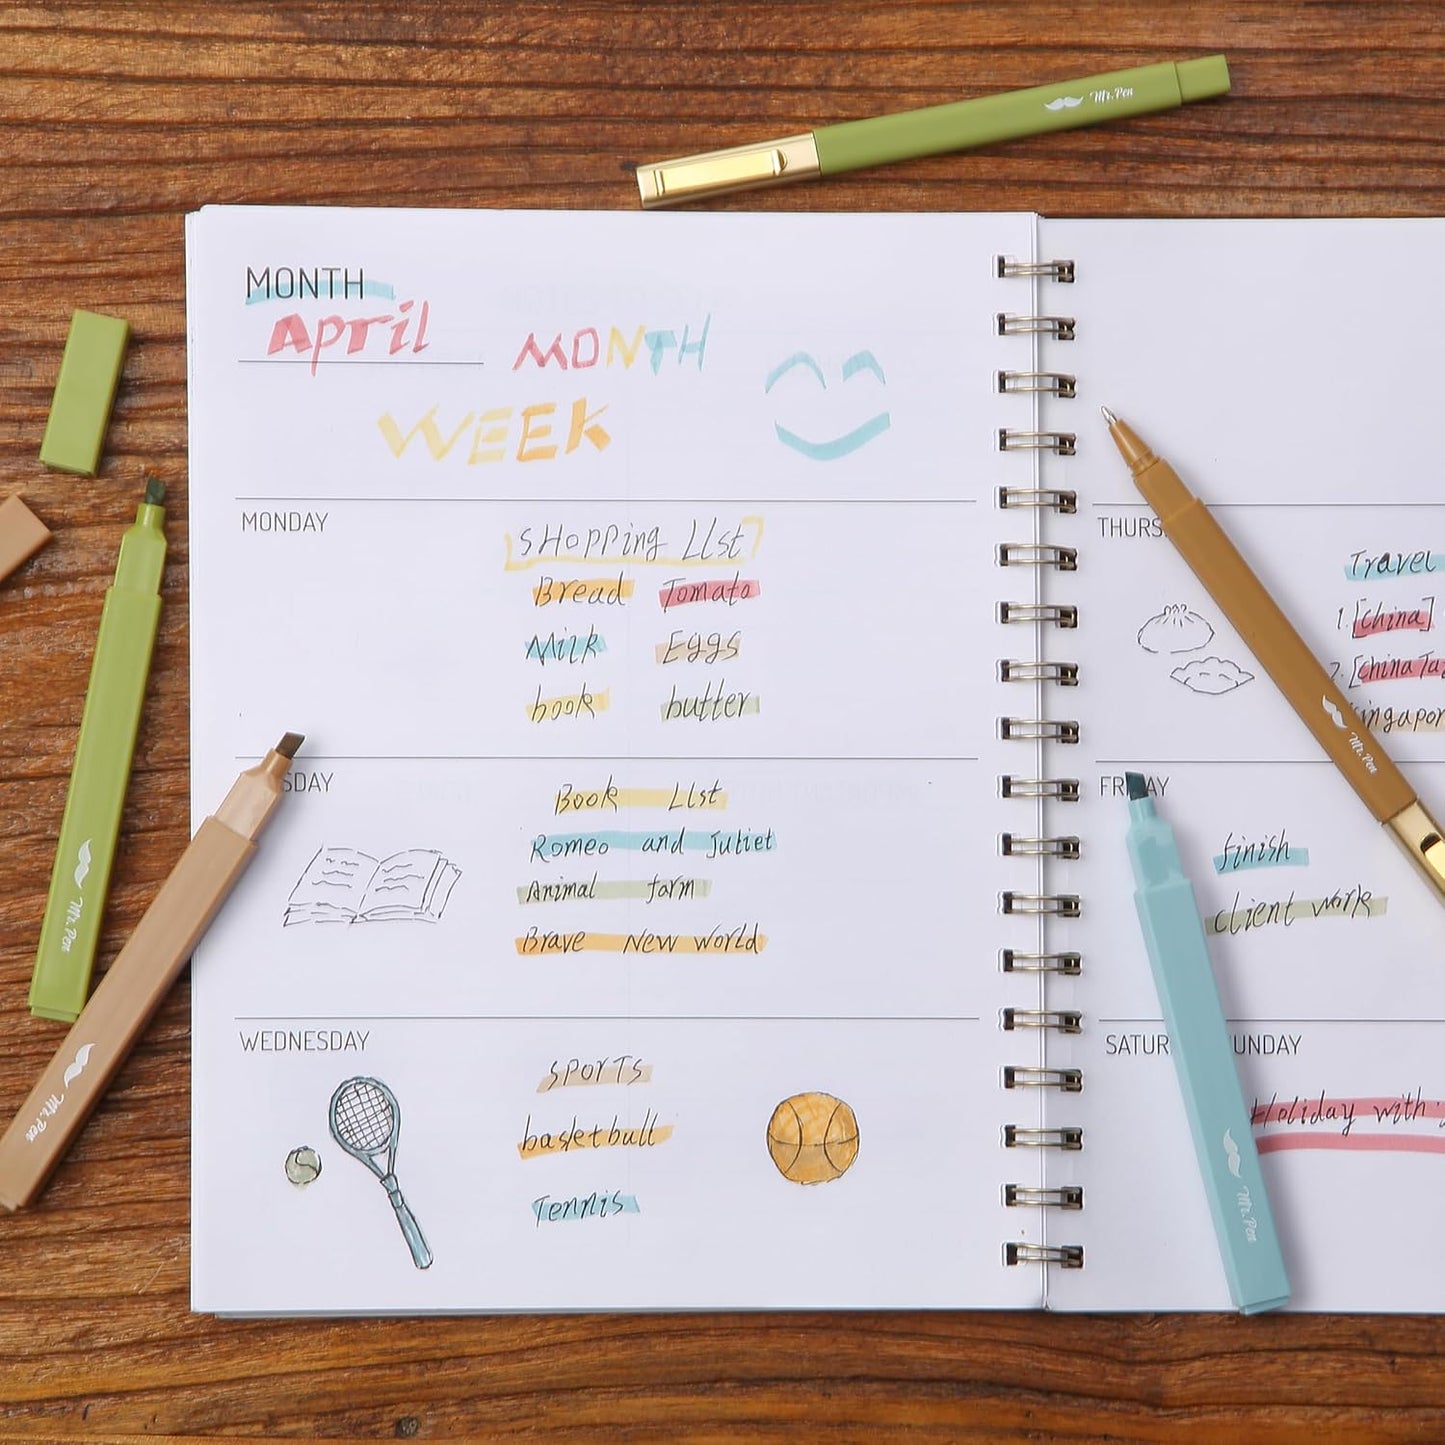 Mr. Pen
MONTH
April
MONTH
WEEK
MONDAY
SHopping LIst
Bread Tomato
Milk Eggs
book butter
SDAY
Book LIst
Romeo and Juliet
Animal farm
Brave New World
WEDNESDAY
SPorTs
basketball
Tennis
THURS
Travel
1. [China]
2. [China Ta
Singapor
FRIDAY
finish
client work
SATUR UNDAY
Holiday with
Mr. Pen
Mr. Pen
Mr. Pen
Mr. Pen